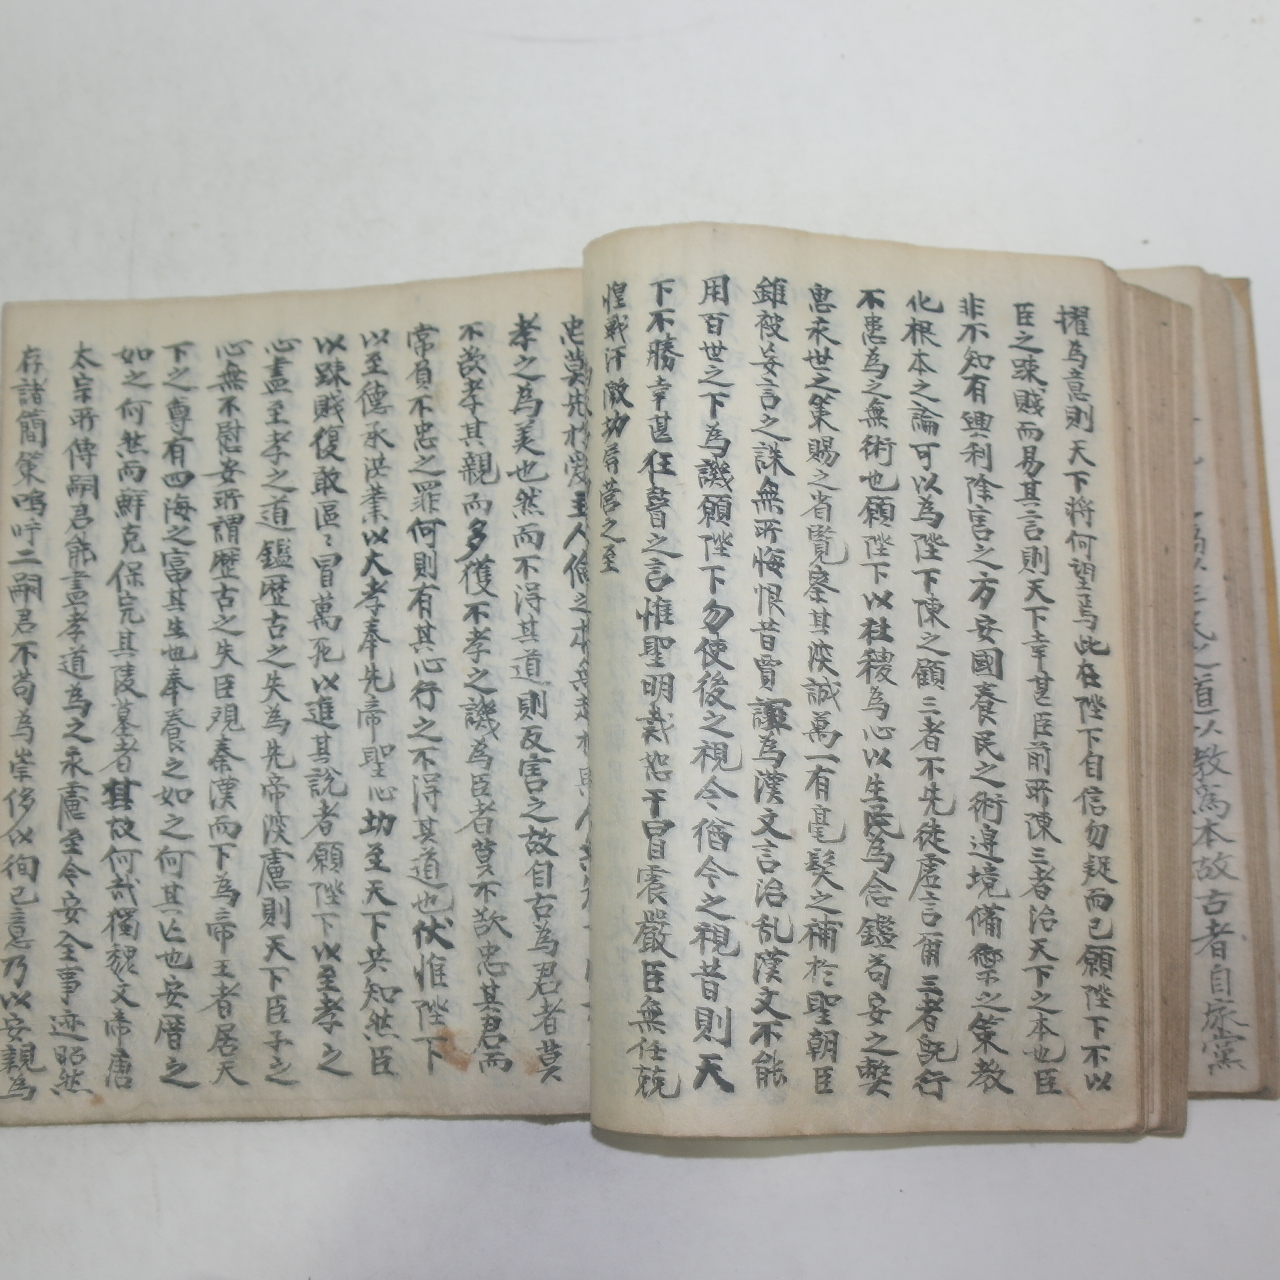 道以教為本故古者自家黨
擢為意則天下將何望焉此在陛下自信勿疑而已願陛下不以
臣之疎賤而易其言則天下幸甚臣前所陳三者治天下之本也臣
非不知有興利除害之方安國養民之術邊境備禦之策教
化根本之論可以為陛下陳之顧三者不先徒虛言爾三者既行
不患為之無術也願陛下以社稷為心以生民為念鑑苟安之弊
思來世之策賜之省覽察其深誠萬一有毫髮之補於聖朝臣
雖被妄言之誅無所悔恨昔賈誼為漢文言治乱漢文不能
用百世之下為譏願陛下勿使後之視今猶今之視昔則天
下不勝幸甚狂瞽之言惟聖明裁恕干冒宸嚴臣無任兢
惶戰汗激切屏營之至
忠莫先於愛主人倫之本無
孝之為美也然而不得其道則反害之故自古為君者莫
不欲孝其親而多獲不孝之譏為臣者莫不欲忠其君而
常負不忠之罪何則有其心行之不得其道也伏惟陛下
以至德承洪業以大孝奉先帝聖心切至天下共知然臣
以疎賤復敢區〻冒萬死以進其說者願陛下以至孝之
心盡至孝之道鑑歷古之失為先帝深慮則天下臣子之
心無不慰安所謂歷古之失臣觀秦漢而下為帝王者居天
下之尊有四海之富其生也奉養之如之何其亡也安厝之
如之何然而鮮克保完其陵墓者其故何哉獨魏文帝唐
太宗所傳嗣君能盡孝道為之永慮至今安全事迹昭然
存諸簡策嗚呼二嗣君不苟為崇侈以徇己意乃以安親為